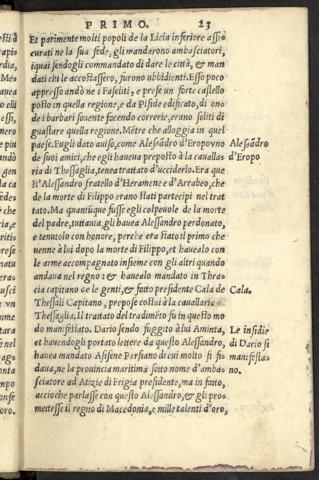 PRIMO. 23
Et parimente molti popoli de la Licia inferiore assi-
curati ne la sua fede, gli mandarono ambasciatori,
i quai sendogli commandato di dare le città, & man
dati chi le accostassero, furono ubbidienti. Esso poco
appresso andò ne i Faseliti, e prese un forte castello
posto in quella regione, e da Piside edificato, di on-
de i barbari souente facendo correrie, erano soliti di
guastare quella regione. Mẽtre che alloggia in quel
paese. Fugli dato auiso, come Alessãdro d'Eropo uno
de suoi amici, che egli haueua preposto à la cauallaria
di Thessaglia, tenea trattato d'ucciderlo. Era que
sti Alessandro fratello d'Heramene e d'Arrabeo, che
de la morte di Filippo erano stati partecipi nel trat
tato. Ma quantũque fusse egli colpeuole de la morte
del padre, tuttauia, gli hauea Alessandro perdonato,
e tenutolo con honore, perche era stato il primo che
uenne à lui dopo la morte di Filippo, et hauealo con
le arme accompagnato insieme con gli altri quando
andaua nel regno: & hauealo mandato in Thra
cia capitano de le genti, & fatto presidente Cala de
Thessali Capitano, prepose costui à la cauallaria di
Thessaglia. Il trattato del tradimẽto fu in questo mo
do manifestato. Dario sendo fuggito à lui Aminta,
et hauendogli portato lettere da questo Alessandro,
hauea mandato Asisene Persiano di cui molto si fi-
daua, ne la prouincia maritima sotto nome d'amba-
sciatore ad Atizie di Frigia presidente, ma in fatto,
accioche parlasse con questo Alessandro, & gli pro-
mettesse il regno di Macedonia, e mille talenti d'oro,
Alessãdro
d'Eropo
Cala.
Le insidie
di Dario si
manifesta-
no.